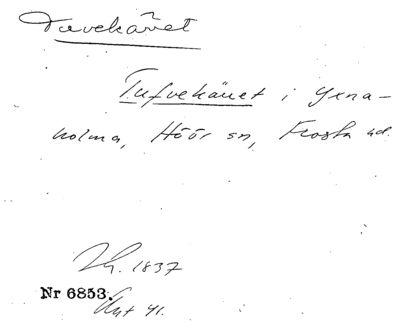 Tuvekäret
Tufvekäret i Yxna-
holma, Höör sn, Frosta hd.
Lh. 1837
Nr 6853.
Avt 41.